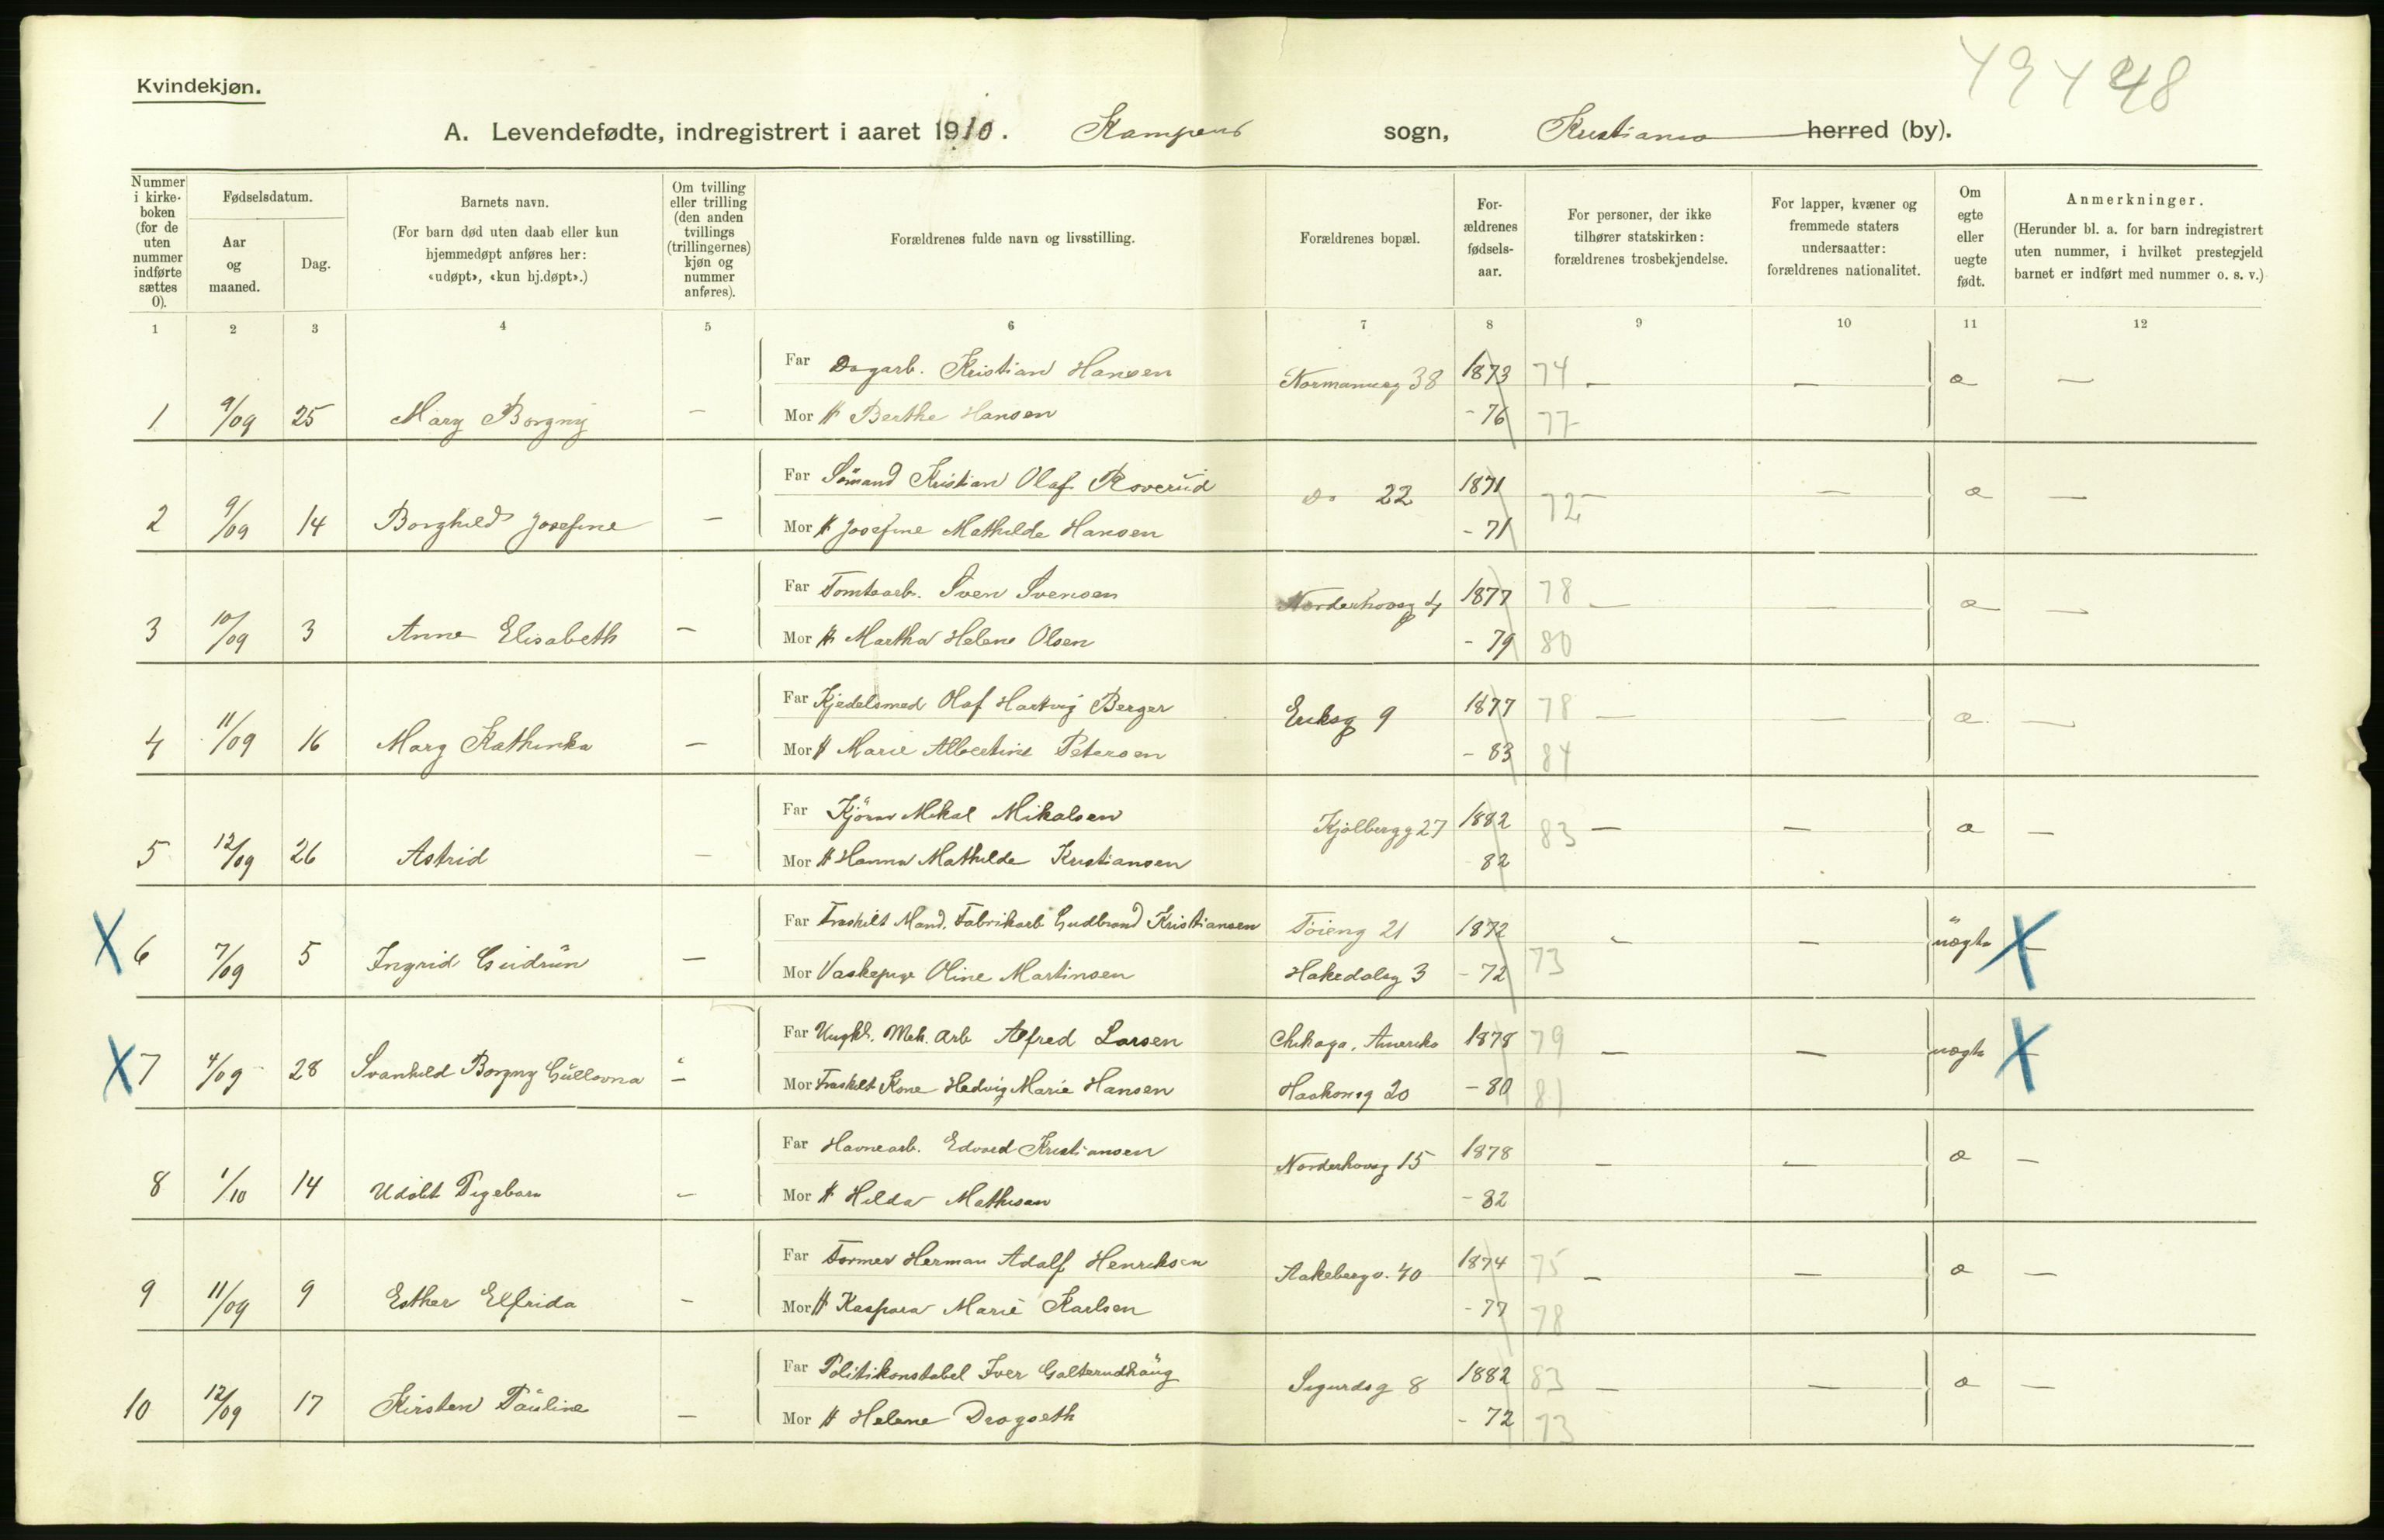 49448
Kvindekjøn.
A. Levendefødte, indregistrert i aaret 1910. Kampens sogn, Kristiania herred (by).
Nummer i kirke-boken (for de uten nummer indførte sættes 0).
Fødselsdatum.
Aar og maaned.
Dag.
Barnets navn.
(For barn død uten daab eller kun hjemmedøpt anføres her: «udøpt», «kun hj.døpt».)
Om tvilling eller trilling (den anden tvillings (trillingernes) kjøn og nummer anføres).
Forældrenes fulde navn og livsstilling.
Forældrenes bopæl.
For-ældrenes fødsels-aar.
For personer, der ikke tilhører statskirken: forældrenes trosbekjendelse.
For lapper, kvæner og fremmede staters undersaatter: forældrenes nationalitet.
Om egte eller uegte født.
Anmerkninger.
(Herunder bl. a. for barn indregistrert uten nummer, i hvilket prestegjeld barnet er indført med nummer o. s. v.)
1 2 3 4 5 6 7 8 9 10 11 12
Far Dagarb. Kristian Hansen Normannsg 38 1873 74 — — a —
1 9/09 25 Mary Borgny — Mor H Berthe Hansen - 76 77
Far Sömand Kristian Olaf Roverud Do 22 1871 72 — — a —
2 9/09 14 Borghild Josefine — Mor H Josefine Mathilde Hansen - 71
Far Tomtearb. Sven Svensen Norderhovsg 4 1877 78 — — a —
3 10/09 3 Anne Elisabeth — Mor H Martha Helene Olsen - 79 80
Far Kjedelsmed Olaf Hartvig Berger Eriksg 9 1877 78 — — a. —
4 11/09 16 Mary Kathinka — Mor H Marie Albertine Petersen - 83 84
Far Kjörer Mikal Mikalsen Kjølbergg 27 1882 83 — — a —
5 12/09 26 Astrid — Mor H Hanna Mathilde Kristiansen 82
Far Fraskilt Mand, Fabrikarb Gudbrand Kristiansen Töieng 21 1872 — — uegte X
X 6 7/09 5 Ingrid Gudrun — Mor Vaskepige Oline Martinsen Hakedalsg 3 - 72 73
Far Ungkl. Mek. Arb Alfred Larsen Chikago, Amerika 1878 79 — — uegte X
X 7 4/09 28 Svanhild Borgny Gullovna — Mor Fraskilt Kone Hedvig Marie Hansen Haakonsg 20 - 80 81
Far Havnearb. Edvard Kristiansen Norderhovsg 15 1878 — — a —
8 1/10 14 Udöbt Pigebarn — Mor H Hilda Mathisen - 82
Far Former Herman Adolf Henriksen Aakebergv. 40 1874 75 — — a —
9 11/09 9 Esther Elfrida — Mor H Kaspara Marie Karlsen - 77 78
Far Politikonstabel Iver Galterudhaug Sigurdsg 8 1882 83 — — a —
10 12/09 17 Kirsten Pauline — Mor H Helene Dragseth - 72 73